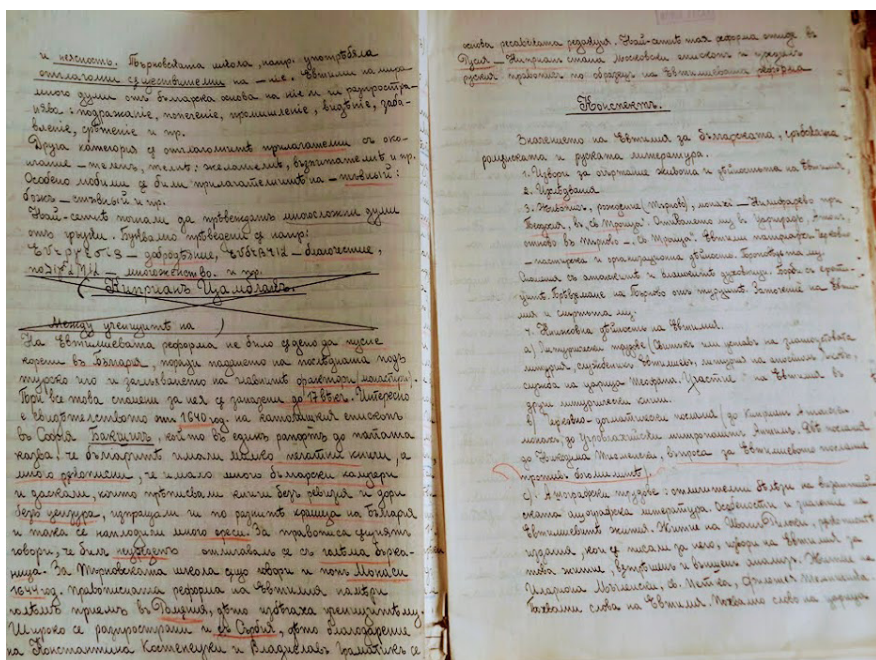 и неясность. Търновската школа, напр. употрѣбява
отглаголни сѫществителни на —ние. Евтимий намира
много думи отъ българска основа на ние и ги разпростра-
нява: подражание, попечение, промишление, видѣние, заба-
вление, срѣтение и пр.
Друга категория сѫ отглаголнитѣ прилагателни съ око-
нчание —теленъ, телнъ: желателнъ, възпитателнъ и пр.
Особено любими сѫ били прилагателнитѣ на —ствный:
божъ —ствный и пр.
Най-сетнѣ почнали да прѣвеждатъ многосложни думи
отъ гръцки. Буквално прѣведени сѫ напр:
— добродѣяние, — благочестие,
— многоженство. и пр.
Киприанъ Цамблакъ.
Между ученицитѣ на
На Евтимиевата реформа не било сѫдено да пусне
корени въ България, поради падането на последната подъ
турско иго и западването на главнитѣ фактори (монастири).
Гори все това спомени за нея сѫ запазени до 17 вѣкъ. Интересно
е свидѣтелството отъ 1640 год. на католишкия епископъ
въ София Бакшичъ, който въ единъ рапортъ до папата
казва, че българитѣ имали малко печатни книги, а
много рѫкописни, че имало много български
и даскали, които прѣписвали книги безъ ревизия и дори
безъ цензура, изпращали ги по разнитѣ краища на България
и така се наплодили много ереси. За правописа сѫщиятъ
говори, че билъ отличавалъ се съ голѣма бърка-
ница. За Търновската школа сѫщо говори и попъ
1644 год. Правописната реформа на Евтимия намѣри
голѣмъ приемъ въ Румъния, дѣто избѣгаха ученицитѣ му.
Широко се разпространи и въ Сърбия, дѣто благодарение
на Константина Костенецки и Владиславъ Граматикъ се
основа ресавската редакция. Най-сетнѣ тая реформа отиде въ
Русия — Киприанъ стана Московски епископъ и нареди
руския правописъ по образецъ на Евтимиевата реформа
Конспектъ.
Значението на Евтимия за българската, сръбската
ромѫнската и руската литература.
1. Извори за външния живота и дѣйностьта на Евтимия,
2. Издѣдвания
3. Животъ, рождение (Търново), монахъ — Килифарево при
Теодосия, въ „Св Троица“. Отиването му въ Цариградъ, Атонъ,
отново въ Търново — „Св Троица“. Евтимий патриархъ. Църковно
— пастирска и организационна дѣйность.
Сношения съ атонскитѣ и влашкитѣ духовници. Борба съ ерети-
цитѣ. Прѣвземане на Търново отъ турцитѣ. Заточение на Евти-
мия и смъртьта му.
4. Книжовна дѣйность на Евтимия.
а) Литургически трудове
литургия, служебникъ Евтимиевъ, литургия на апостолъ Яковъ,
служба на царица Теофана. Участие на Евтимия въ
други литургически книги.
в) Църковно-догматически послания (до Киприанъ Атонски
монахъ, до Угровлахийски митрополитъ Антимъ. Двѣ послания
до Никодима Тисменски, въпроса за Евтимиевото послание
противъ богомилитѣ).
с) Агиографски трудове: отличителни бѣлѣзи на византий-
ската агиографска литература. Особености и значение на
Евтимиевитѣ жития. Житие на Ивана Рилски, рѫкописи,
издания, кои сѫ писали за него, извори на Евтимия за
това житие, вѫтрѣшенъ и външенъ анализъ. Житие на
Илариона Мъгленски, св. Петка, Филотея Темнишка.
Похвални слова на Евтимия. Похвално слово на царица